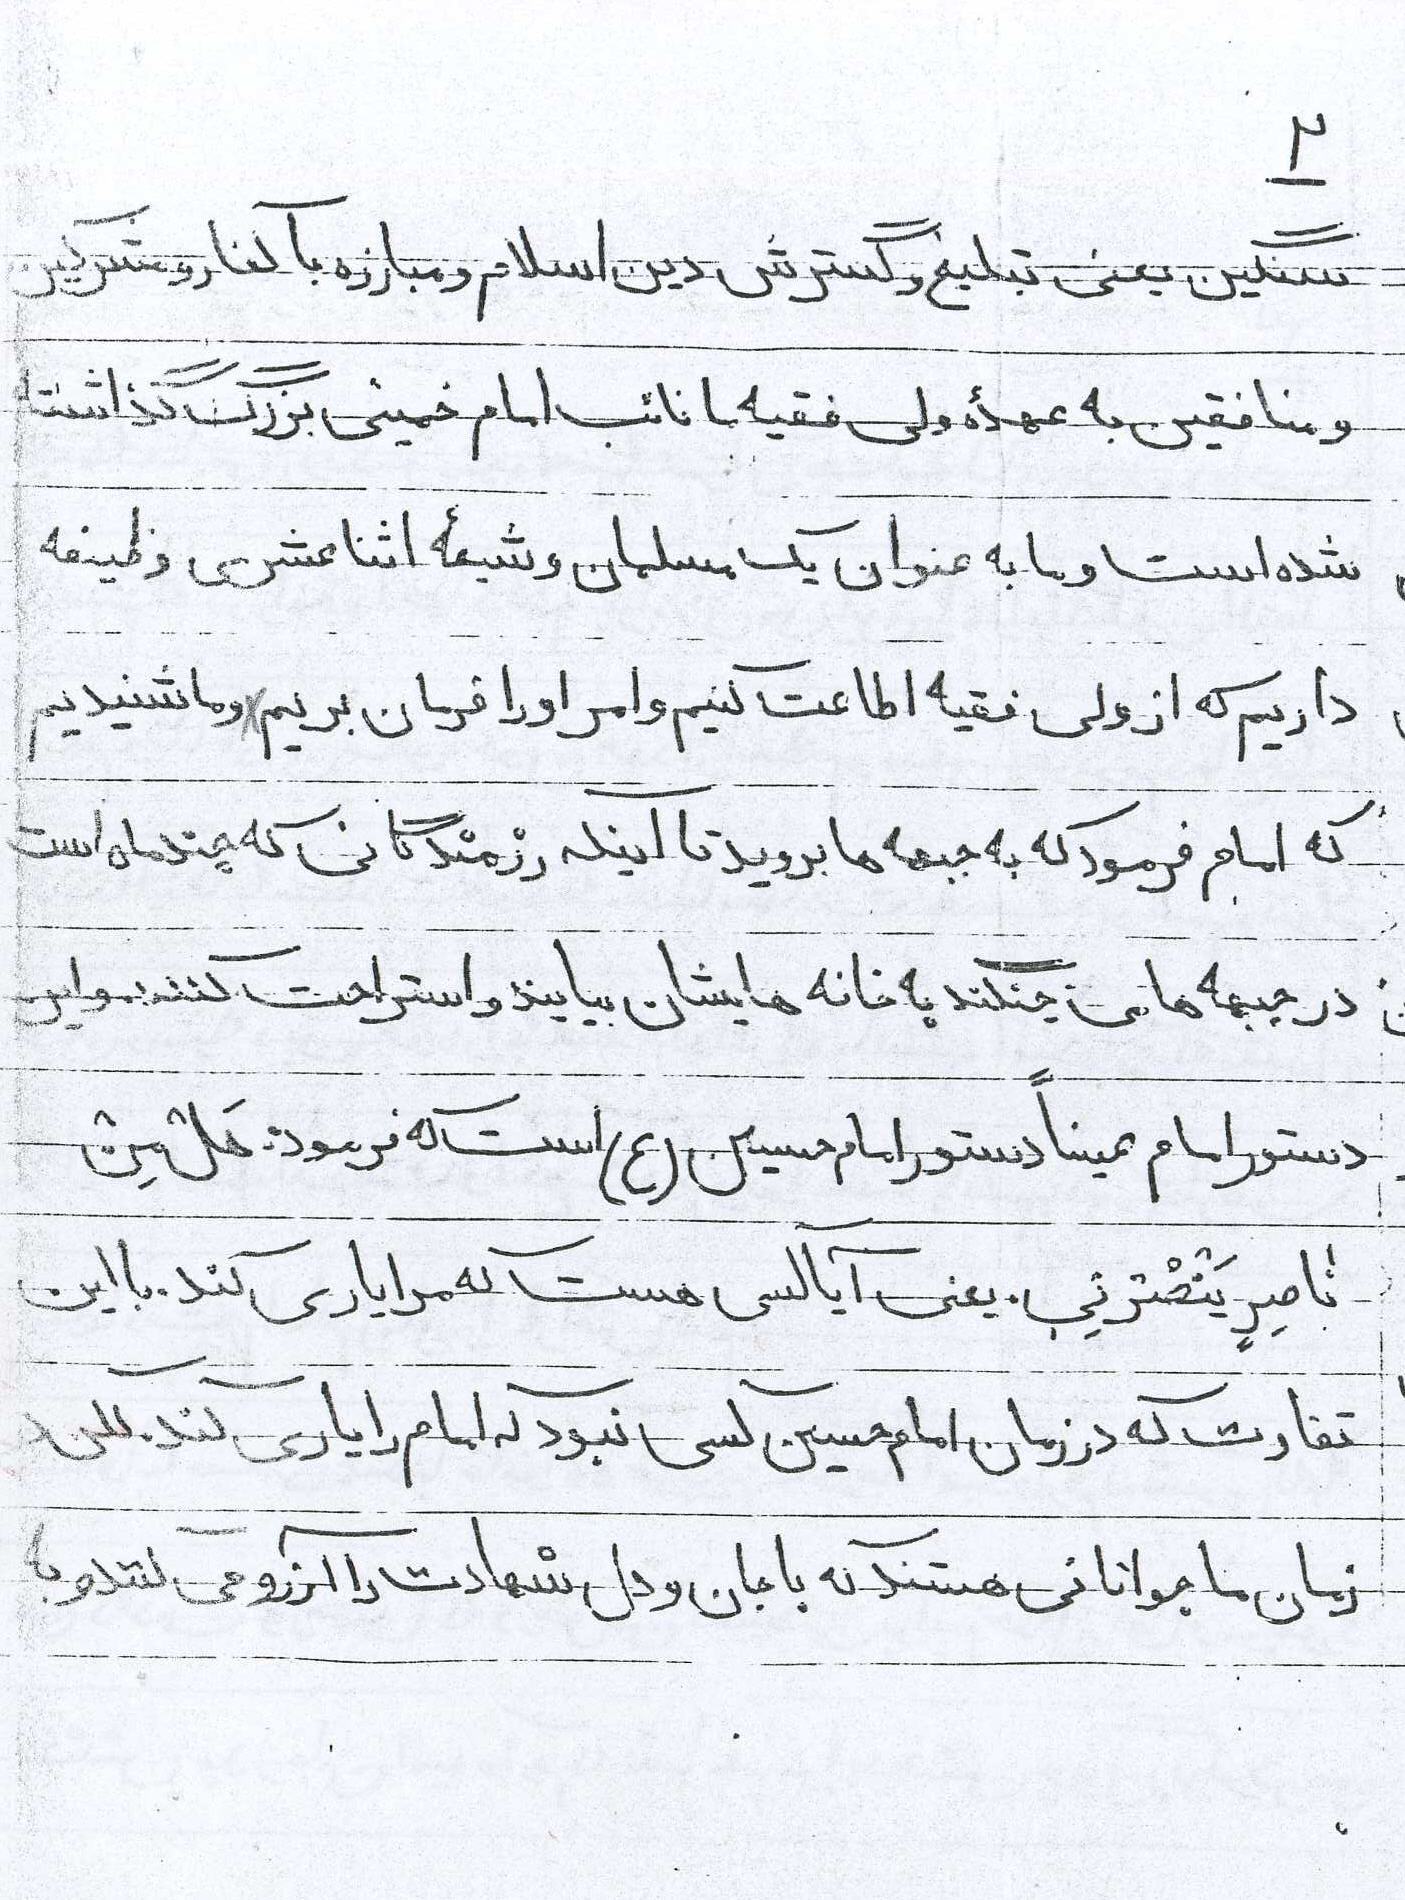 ۲
سنگین یعنی تبلیغ و گسترش دین اسلام و مبارزه با کفار و مشرکین
و منافقین به عهدهٔ ولی فقیه ما نائب امام خمینی بزرگ گذاشته
شده است و ما به عنوان یک مسلمان و شیعهٔ اثنا عشری وظیفه
داریم که از ولی فقیه اطاعت کنیم و امر او را فرمان بریم و ما شنیدیم
که امام فرمود که به جبهه ها بروید تا اینکه رزمندگانی که چند ماه است
در جبهه ها می جنگند به خانه هایشان بیایند و استراحت کنند. و این
دستور امام عیناً دستور امام حسین (ع) است که فرمود: هَل مِن
ناصِرٍ یَنْصُرنِی. یعنی آیا کسی هست که مرا یاری کند. با این
تفاوت که در زمان امام حسین کسی نبود که امام را یاری کند. لکن در
زمان ما جوانانی هستند که با جان و دل شهادت را آرزو می کنند و با